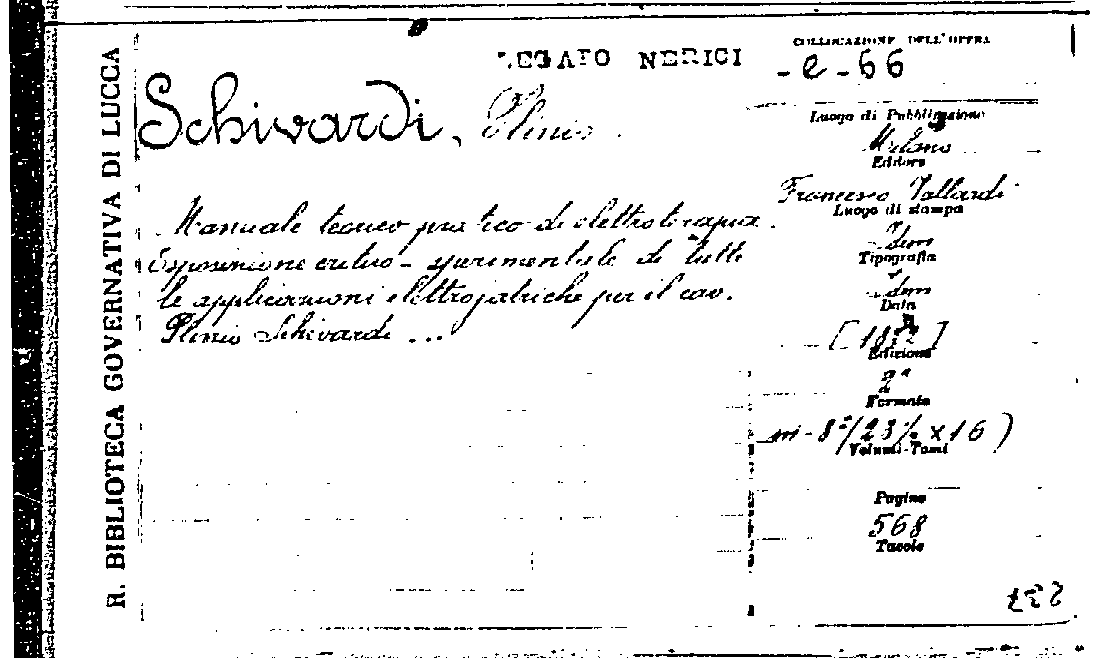 R. BIBLIOTECA GOVERNATIVA DI LUCCA
LEGATO NERICI
COLLOCAZIONE DELL'OPERA
- e - 66
Schivardi, Plinio.
Manuale tecnico pratico di elettroterapia.
Esposizione critico-sperimentale di tutte
le applicazioni elettrojatriche per il cav.
Plinio Schivardi ...
Luogo di Pubblicazione
Milano
Editore
Francesco Vallardi
Luogo di stampa
Idem
Tipografia
Idem
Data
Edizione
2ª
Formato
in-8º/23½ x 16)
Volumi-Tomi
Pagine
568
Tavole